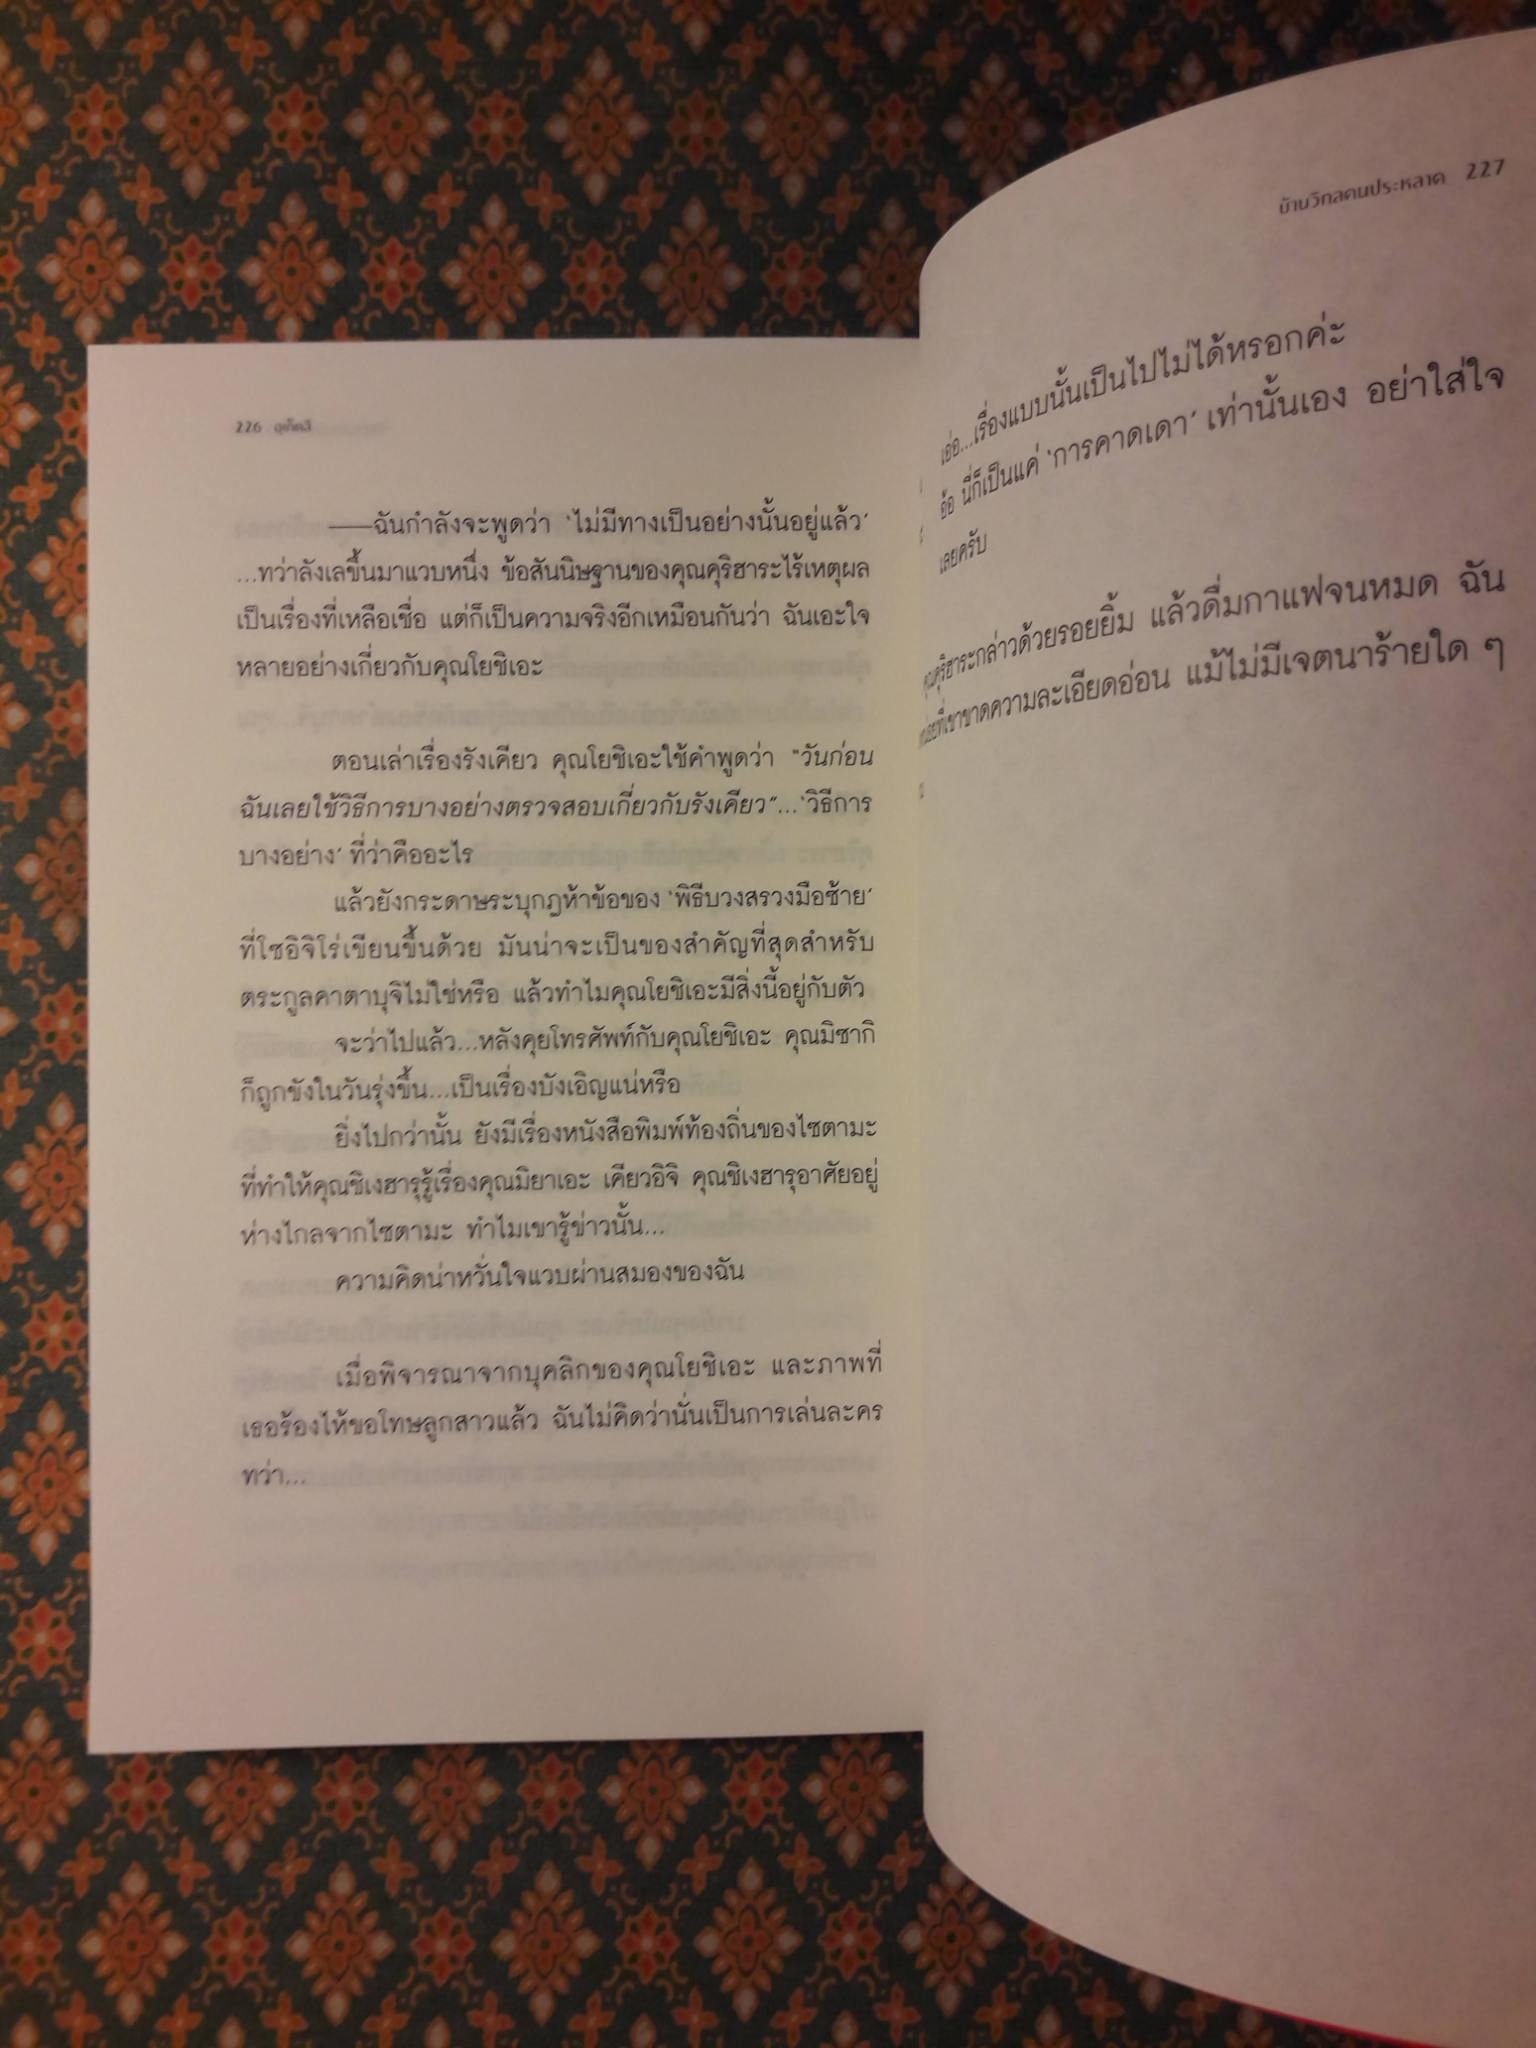 226 อุเก็ตสึ
——ฉันกำลังจะพูดว่า ‘ไม่มีทางเป็นอย่างนั้นอยู่แล้ว’
...ทว่าลังเลขึ้นมาแวบหนึ่ง ข้อสันนิษฐานของคุณคุริฮาระไร้เหตุผล
เป็นเรื่องที่เหลือเชื่อ แต่ก็เป็นความจริงอีกเหมือนกันว่า ฉันเอะใจ
หลายอย่างเกี่ยวกับคุณโยชิเอะ
ตอนเล่าเรื่องรังเคียว คุณโยชิเอะใช้คำพูดว่า “วันก่อน
ฉันเลยใช้วิธีการบางอย่างตรวจสอบเกี่ยวกับรังเคียว”...‘วิธีการ
บางอย่าง’ ที่ว่าคืออะไร
แล้วยังกระดาษระบุกฎห้าข้อของ ‘พิธีบวงสรวงมือซ้าย’
ที่โซอิจิโร่เขียนขึ้นด้วย มันน่าจะเป็นของสำคัญที่สุดสำหรับ
ตระกูลคาตาบุจิไม่ใช่หรือ แล้วทำไมคุณโยชิเอะมีสิ่งนี้อยู่กับตัว
จะว่าไปแล้ว...หลังคุยโทรศัพท์กับคุณโยชิเอะ คุณมิซากิ
ก็ถูกขังในวันรุ่งขึ้น...เป็นเรื่องบังเอิญแน่หรือ
ยิ่งไปกว่านั้น ยังมีเรื่องหนังสือพิมพ์ท้องถิ่นของไซตามะ
ที่ทำให้คุณชิเงฮารุรู้เรื่องคุณมิยาเอะ เคียวอิจิ คุณชิเงฮารุอาศัยอยู่
ห่างไกลจากไซตามะ ทำไมเขารู้ข่าวนั้น...
ความคิดน่าหวั่นใจแวบผ่านสมองของฉัน
เมื่อพิจารณาจากบุคลิกของคุณโยชิเอะ และภาพที่
เธอร้องไห้ขอโทษลูกสาวแล้ว ฉันไม่คิดว่านั่นเป็นการเล่นละคร
ทว่า...
บ้านวิกลคนประหลาด 227
เอ่อ...เรื่องแบบนั้นเป็นไปไม่ได้หรอกค่ะ
อ้อ นี่ก็เป็นแค่ ‘การคาดเดา’ เท่านั้นเอง อย่าใส่ใจ
เลยครับ
คุณคุริฮาระกล่าวด้วยรอยยิ้ม แล้วดื่มกาแฟจนหมด ฉัน
ที่เขาขาดความละเอียดอ่อน แม้ไม่มีเจตนาร้ายใด ๆ